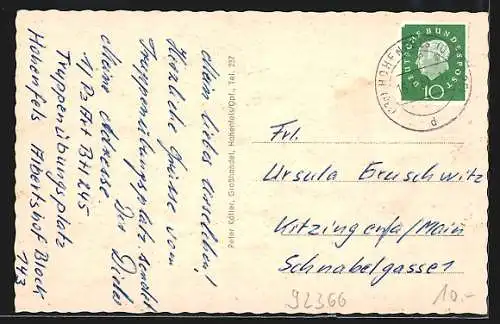 Mein liebes Urselchen!
Herzliche Grüsse vom
Truppenübungsplatz sendet
Dein Dieter
Meine Adresse:
1/ Pz Art Btl 215
Truppenübungsplatz
Hohenfels Albertshof Block
143
Peter Költer, Großhandel, Hohenfels/Opf., Tel. 257
DEUTSCHE BUNDESPOST
10
HOHENFELS
d
Frl.
Ursula
Kitzingen a/Main
Schnabelgasse 1
92366
10.-